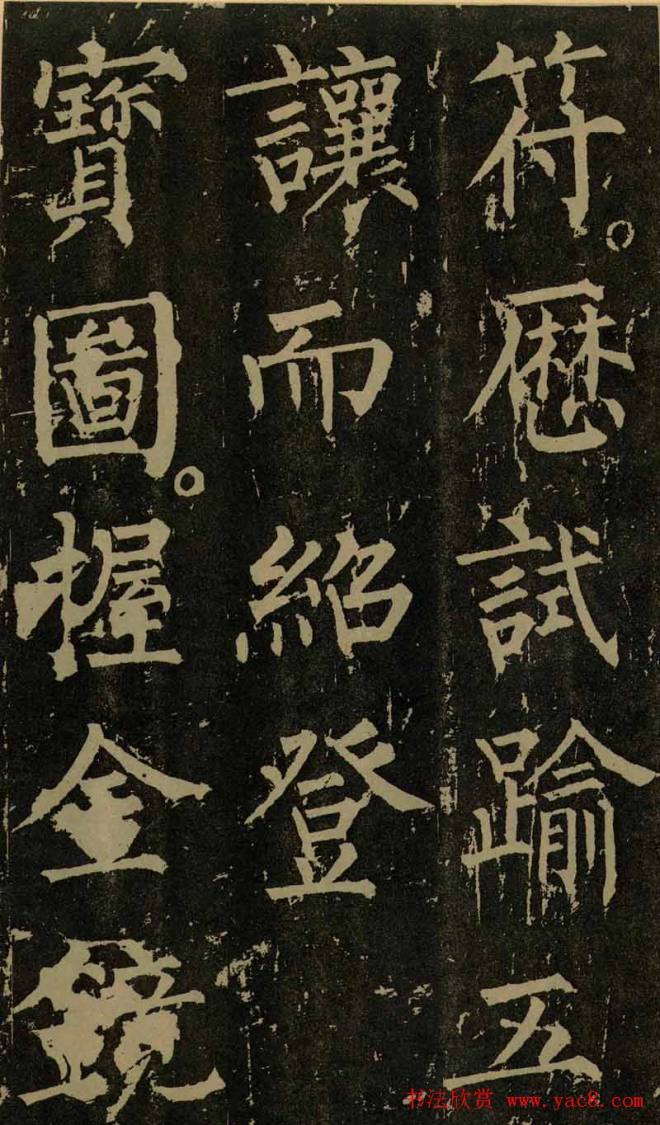 符。歴試踰五
讓而紹登
寶圖。握金鏡
书法欣赏 www.yac8.com